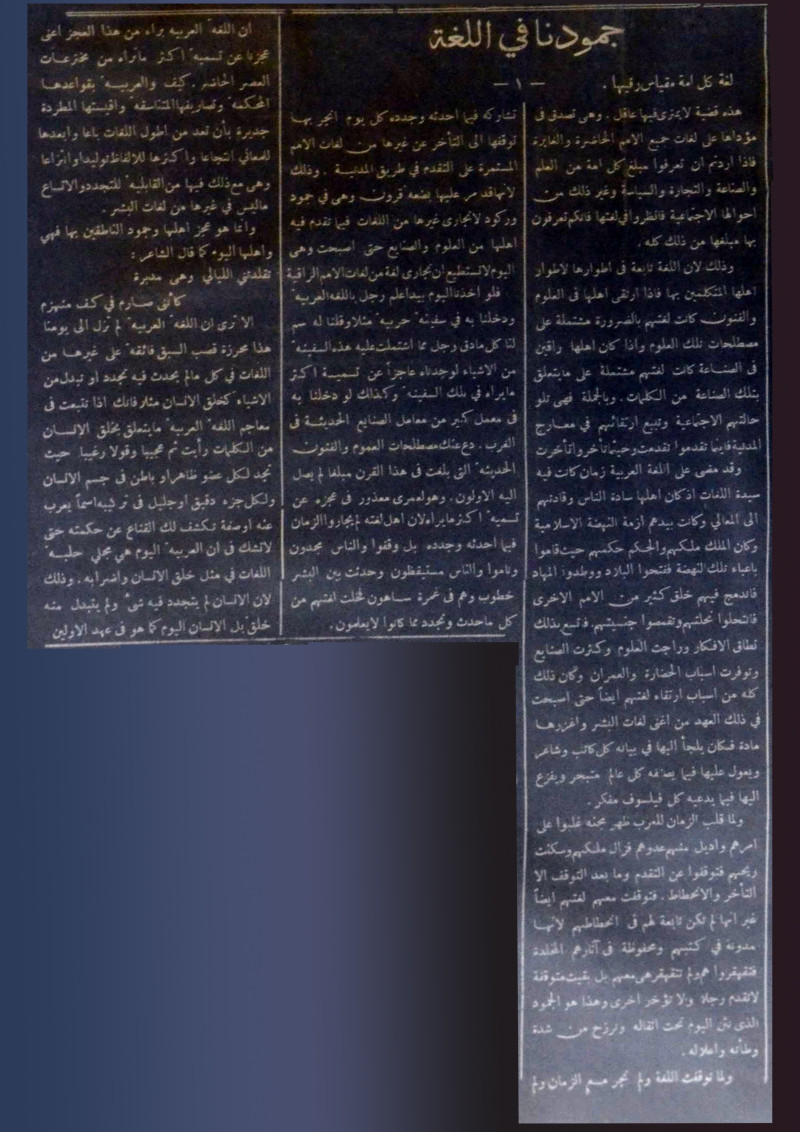 جمودنا في اللغة
— ١ —
لغة كل امة مقياس رقيها .
هذه قضية لا يمترى فيها عاقل . وهى تصدق فى
مؤداها على لغات جميع الامم الحاضرة والغابرة
فاذا اردتم ان تعرفوا مبلغ كل امة من العلم
والصناعة والتجارة والسياسة وغير ذلك من
احوالها الاجتماعية فانظروا فى لغتها فانكم تعرفون
بها مبلغها من ذلك كله .
وذلك لان اللغة تابعة فى اطوارها لاطوار
اهلها المتكلمين بها فاذا ارتقى اهلها فى العلوم
والفنون كانت لغتهم بالضرورة مشتملة على
مصطلحات تلك العلوم واذا كان اهلها راقين
فى الصناعة كانت لغتهم مشتملة على ما يتعلق
بتلك الصناعة من الكلمات . وبالجملة فهى تلو
حالتهم الاجتماعية وتبيع ارتقائهم فى معارج
المدنية فاينما تقدموا تقدمت وحيثما تأخروا تأخرت
وقد مضى على اللغة العربية زمان كانت فيه
سيدة اللغات اذ كان اهلها سادة الناس وقادتهم
الى المعالي وكانت بيدهم ازمة النهضة الاسلامية
وكان الملك ملكهم والحكم حكمهم حيث قاموا
باعباء تلك النهضة ففتحوا البلاد ووطدوا المهاد
فاندمج فيهم خلق كثير من الامم الاخرى
فانتحلوا نحلتهم وتقمصوا جنسيتهم . فاتسع بذلك
نطاق الافكار وراجت العلوم وكثرت الصنايع
وتوفرت اسباب الحضارة والعمران وكان ذلك
كله من اسباب ارتقاء لغتهم ايضاً حتى اصبحت
في ذلك العهد من اغنى لغات البشر واغزرها
مادة فكان يلجأ اليها في بيانه كل كاتب وشاعر
ويعول عليها فيما يصفه كل عالم متبحر ويفزع
اليها فيما يدعيه كل فيلسوف مفكر .
ولما قلب الزمان للعرب ظهر مجنه غلبوا على
امرهم واديل منهم عدوهم فزال ملكهم وسكنت
ريحهم فتوقفوا عن التقدم وما بعد التوقف الا
التأخر والانحطاط . فتوقفت معهم لغتهم ايضاً
غير انها لم تكن تابعة لهم فى انحطاطهم لانها
مدونة في كتبهم ومحفوظة فى آثارهم المخلدة
فتقهقروا هم ولم تتقهقر هى معهم بل بقيت متوقفة
لا تقدم رجلا ولا تؤخر اخرى وهذا هو الجمود
الذى نئن اليوم تحت اثقاله ونرزح من شدة
وطأته واغلاله .
ولما توقفت اللغة ولم تجر مع الزمان ولم
تشاركه فيما احدثه وجدده كل يوم انجر بها
توقفها الى التأخر عن غيرها من لغات الامم
المستمرة على التقدم في طريق المدنية . وذلك
لانها قد مر عليها بضعة قرون وهى في جمود
وركود لا تجارى غيرها من اللغات فيما تقدم فيه
اهلها من العلوم والصنايع حتى اصبحت وهى
اليوم لا تستطيع ان تجارى لغة من لغات الامم الراقية
فلو اخذنا اليوم بيد اعلم رجل باللغة العربية
ودخلنا به في سفينة حربية مثلا وقلنا له سم
لنا كل ما دق وجل مما اشتملت عليه هذه السفينة
من الاشياء لوجدناه عاجزاً عن تسمية اكثر
ما يراه في تلك السفينة وكذلك لو دخلنا به
فى معمل كبير من معامل الصنايع الحديثة فى
الغرب . دع عنك مصطلحات العموم والفنون
الحديثة التى بلغت فى هذا القرن مبلغا لم يصل
اليه الاولون . وهو لعمرى معذور فى عجزه عن
تسمية اكثر ما يراه لان اهل لغته لم يجاروا الزمان
فيما احدثه وجدده بل وقفوا والناس مجدون
وناموا والناس مستيقظون وحدثت بين البشر
خطوب وهم فى غمرة ساهون فخلت لغتهم من
كل ما حدث وتجدد مما كانوا لا يعلمون .
ان اللغة العربية براء من هذا العجز اعنى
عجزنا عن تسمية اكثر ما نراه من مخترعات
العصر الحاضر . كيف والعربية بقواعدها
المحكمة وتصاريفها المتناسقة واقيستها المطردة
جديرة بأن تعد من اطول اللغات باعا وابعدها
للمعاني انتجاعا واكثرها للالفاظ توليدا وانزاعا
وهى مع ذلك فيها من القابلية للتجدد والاتساع
ماليس في غيرها من لغات البشر .
وانما هو عجز اهلها وجمود الناطقين بها فهي
واهلها اليوم كما قال الشاعر :
تقلدتني الليالي وهى مدبرة
كأننى صارم في كف منهزم
الا ترى ان اللغة العربية لم تزل الى يومنا
هذا محرزة قصب السبق فائقة على غيرها من
اللغات في كل عالم يحدث فيه تجدد او تبدل من
الاشياء كخلق الانسان مثلا فانك اذا تتبعت فى
معاجم اللغة العربية ما يتعلق بخلق الانسان
من الكلمات رأيت ثم عجيبا وقولا رغيبا حيث
تجد لكل عضو ظاهر او باطن فى جسم الانسان
ولكل جزء دقيق او جليل فى تركيبه اسماً يعرب
عنه او صفة تكشف لك القناع عن حكمته حتى
لا تشك فى ان العربية اليوم هي مجلي حلبة
اللغات في مثل خلق الانسان واضرابه . وذلك
لان الانسان لم يتجدد فيه شئ ولم يتبدل منه
خلق بل الانسان اليوم كما هو فى عهد الاولين